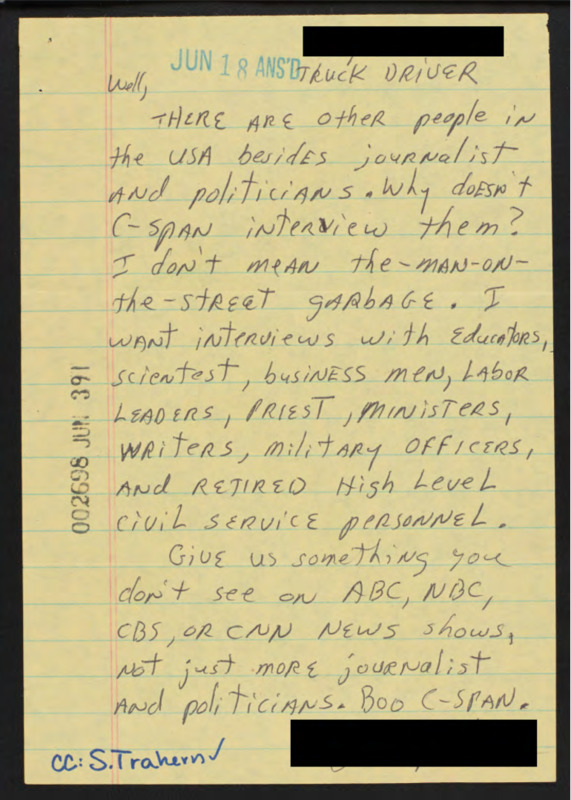 JUN 18 ANS'D
TRUCK DRIVER
Well,
THERE ARE other people in
the USA besides journalist
AND politicians. Why doesn't
C-SPAN interview them?
I don't mean the-MAN-ON-
the-STREET GARBAGE. I
WANT interviews with Educators,
scientest, business men, LABOR
LEADERS, PRIEST, MINISTERS,
WRITERS, military OFFICERS,
AND RETIRED High Level
civil SERVICE personnel.
Give us something you
don't see on ABC, NBC,
CBS, OR CNN NEWS shows,
not just more journalist
AND politicians. Boo C-SPAN.
cc: S. Trahern ✓
002698 JUN 391